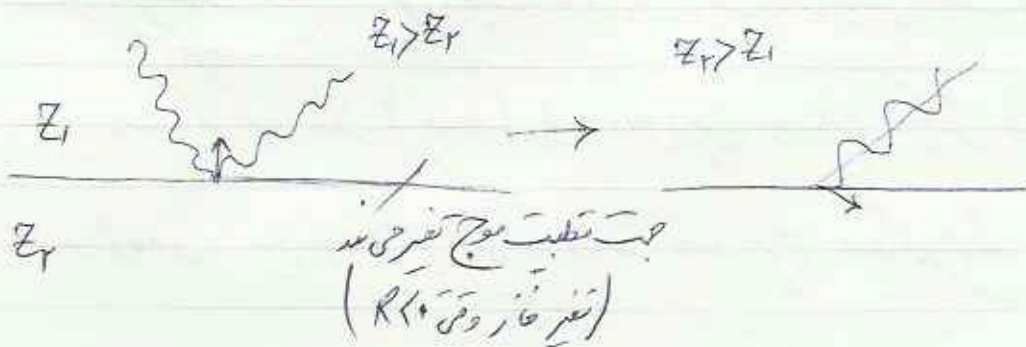 Z₁>Z₂
Z₂>Z₁
Z₁
Z₂
جهت قطبیت موج تغییر می کند
(تغییر فاز وقتی R<۰)